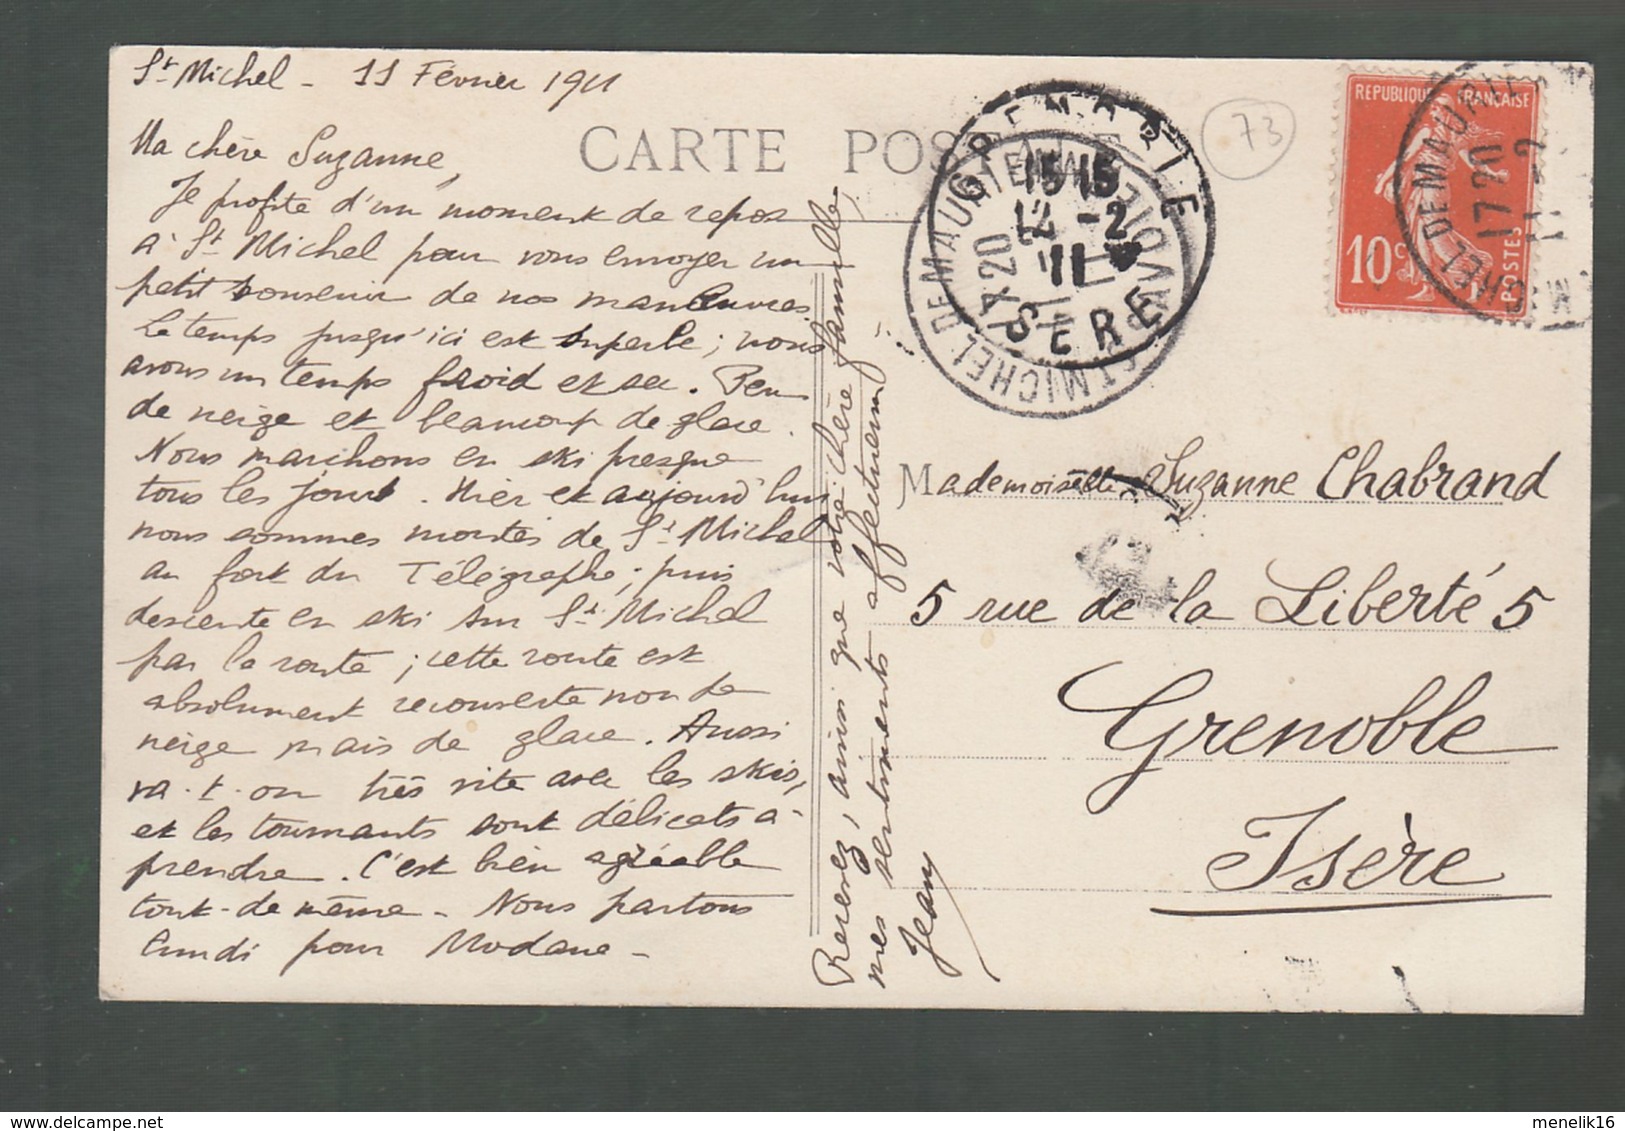 St Michel - 11 Février 1911
Ma chère Suzanne,
Je profite d'un moment de repos
à St Michel pour vous envoyer un
petit souvenir de nos manœuvres.
Le temps jusqu'ici est superbe ; nous
avons un temps froid et sec. Peu
de neige et beaucoup de glace.
Nous marchons en ski presque
tous les jours. Hier et aujourd'hui
nous sommes montés de St Michel
au fort du Télégraphe ; puis
descente en ski sur St Michel
par la route ; cette route est
absolument recouverte non de
neige mais de glace. Aussi
va-t-on très vite avec les skis,
et les tournants sont délicats à
prendre. C'est bien agréable
tout-de même - Nous partons
lundi pour Modane -
Recevez, ainsi que votre chère famille,
mes sentiments affectueux
Jean
CARTE POSTALE
73
GRENOBLE
15 15
12 -2
11
ISERE
ST MICHEL DE MAURIENNE
SAVOIE
REPUBLIQUE FRANÇAISE
10c
POSTES
ST MICHEL DE MAURIENNE
17 20
11 -2
Mademoiselle Suzanne Chabrand
5 rue de la Liberté 5
Grenoble
Isère
menelik16